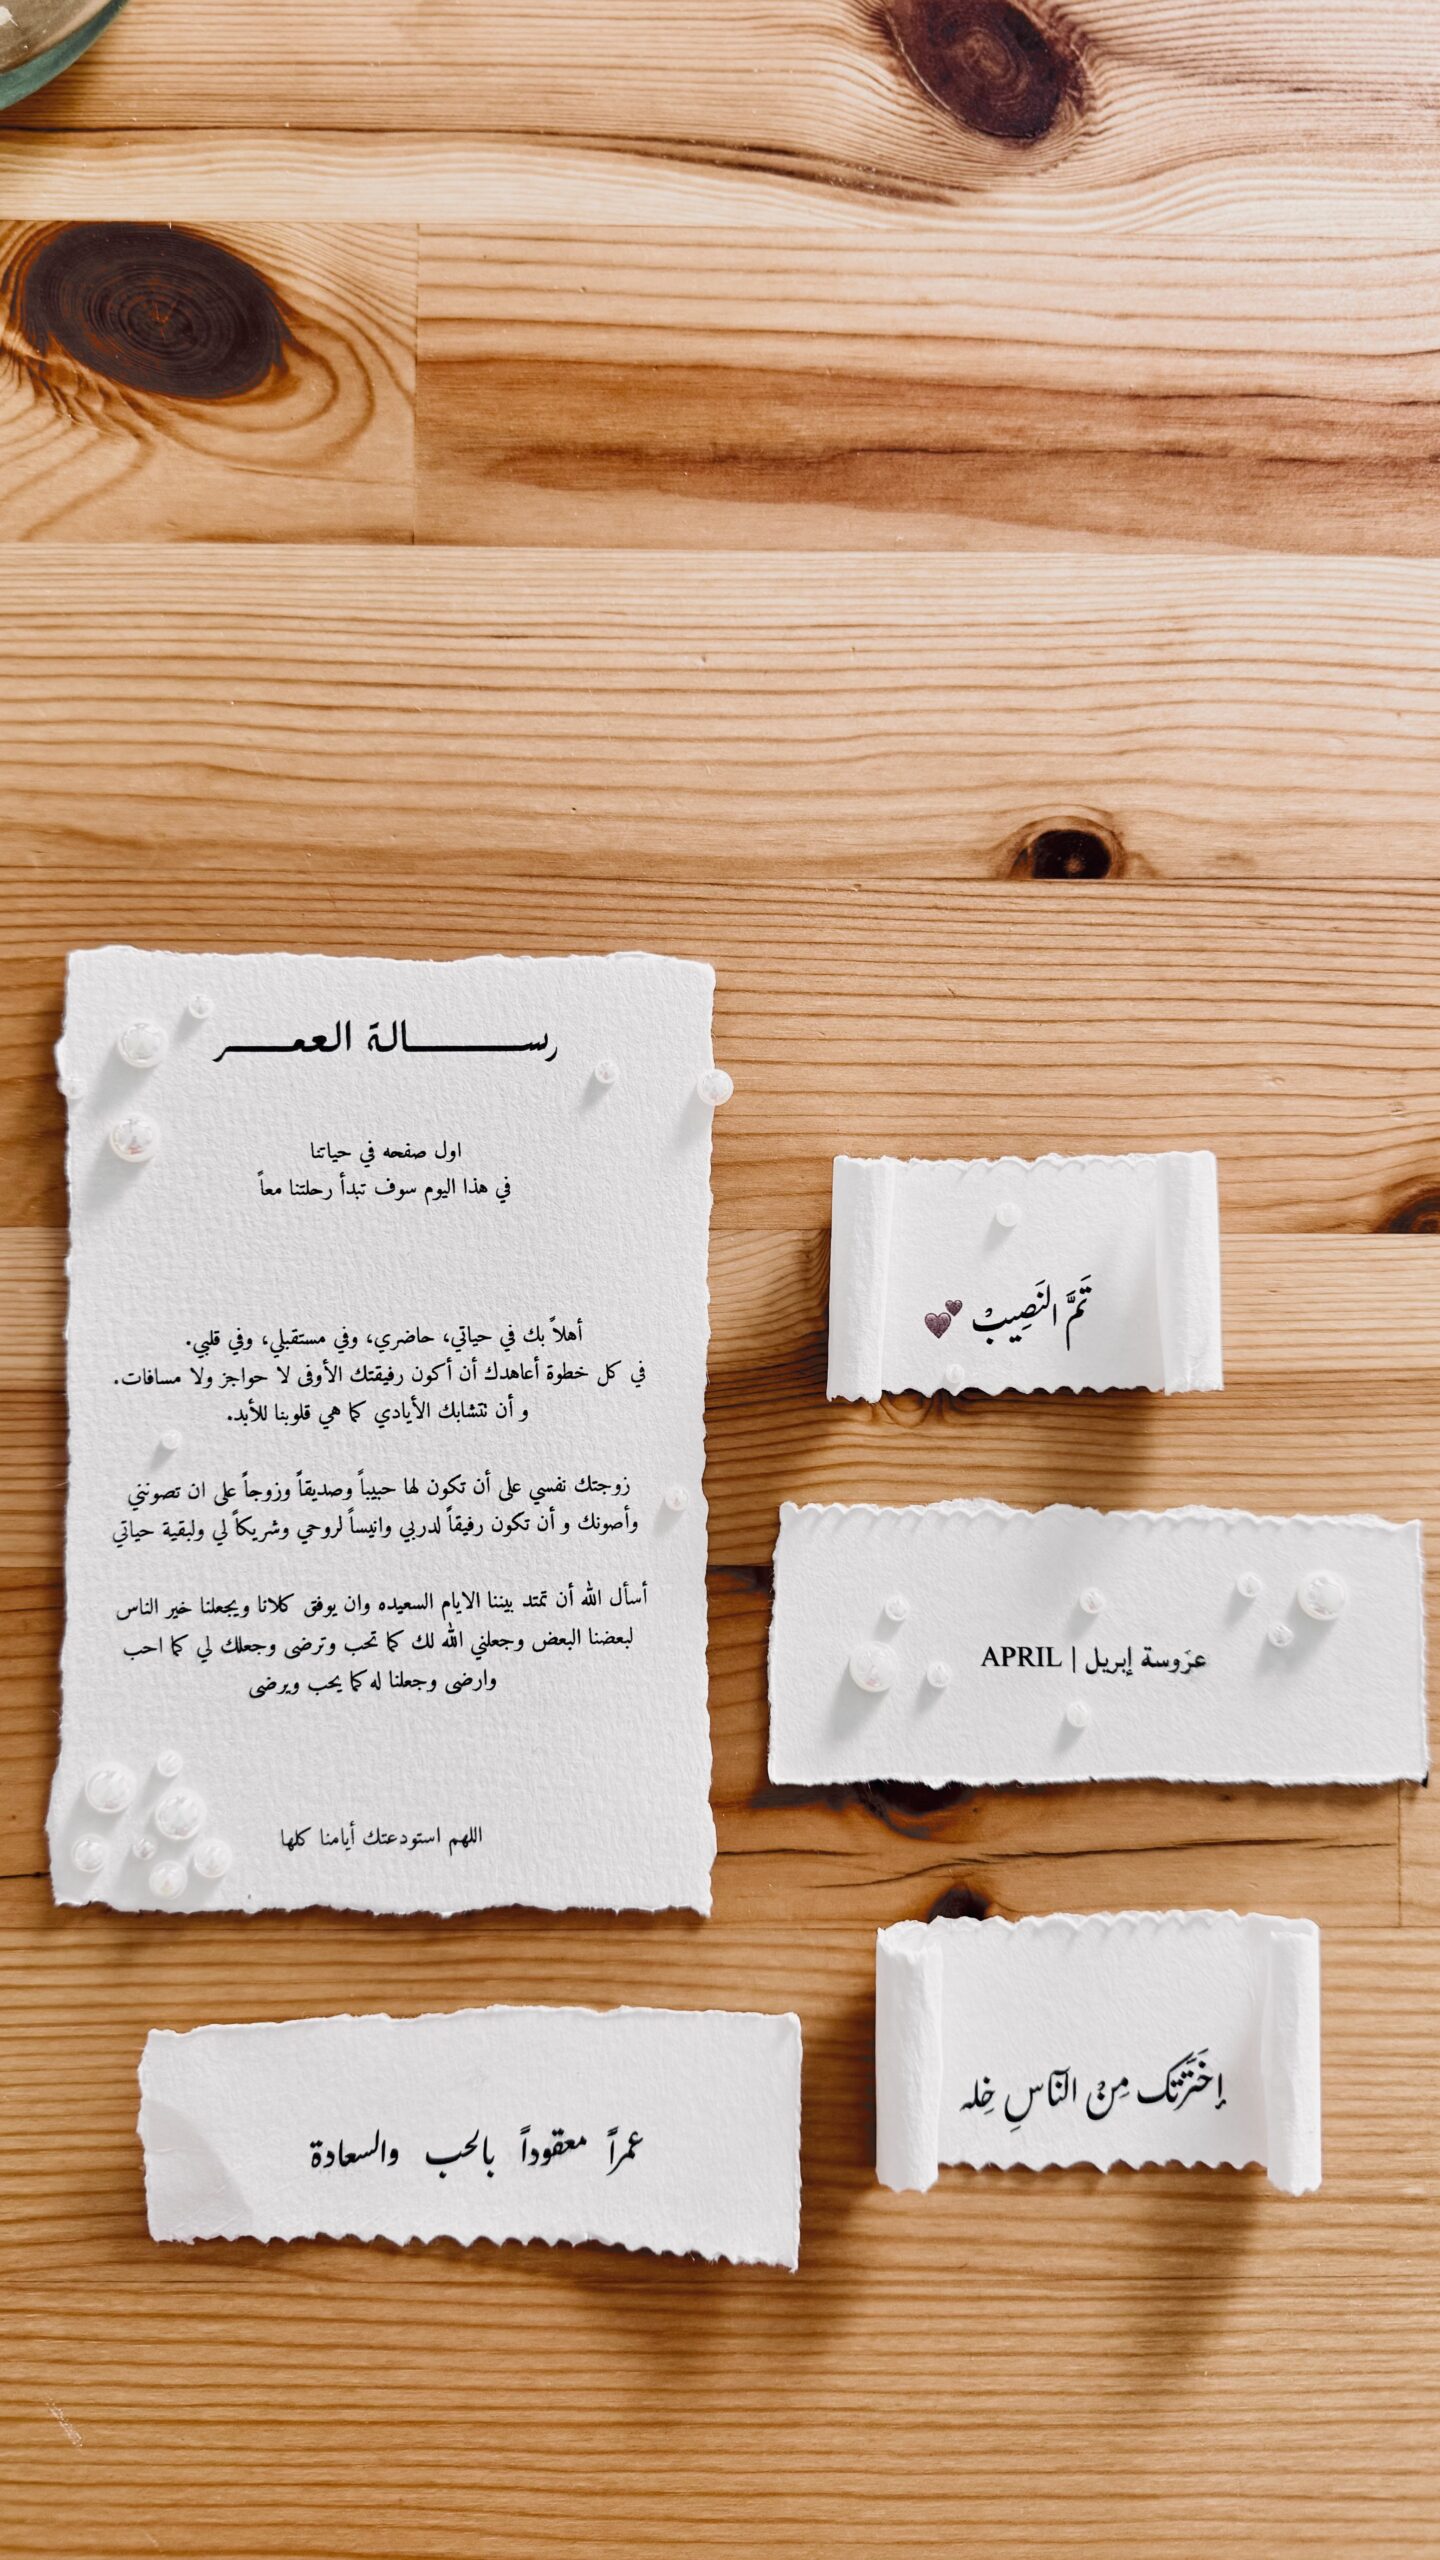 رسالة العمر
اول صفحه في حياتنا
في هذا اليوم سوف تبدأ رحلتنا معاً
أهلاً بك في حياتي، حاضري، وفي مستقبلي، وفي قلبي.
في كل خطوة أعاهدك أن أكون رفيقتك الأوفى لا حواجز ولا مسافات.
و أن تتشابك الأيادي كما هي قلوبنا للأبد.
زوجتك نفسي على أن تكون لها حبيباً وصديقاً وزوجاً على ان تصونني
وأصونك و أن تكون رفيقاً لدربي وانيساً لروحي وشريكاً لي ولبقية حياتي
أسأل الله أن تمتد بيننا الايام السعيده وان يوفق كلانا ويجعلنا خير الناس
لبعضنا البعض وجعلني الله لك كما تحب وترضى وجعلك لي كما احب
وارضى وجعلنا له كما يحب ويرضى
اللهم استودعتك أيامنا كلها
تَمَّ النَصِيبْ 💕
عروسة إبريل | APRIL
إخَتَرتَك مِنْ النَاسِ خِله
عمراً معقوداً بالحب والسعادة